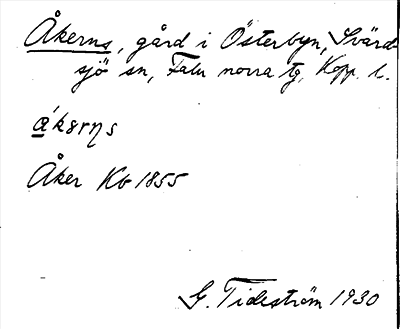 Åkerns, gård i Österbyn, Svärd-
sjö sn, Falu norra tg, Kopp. l.
Åker Kb 1855
G. Tideström 1930